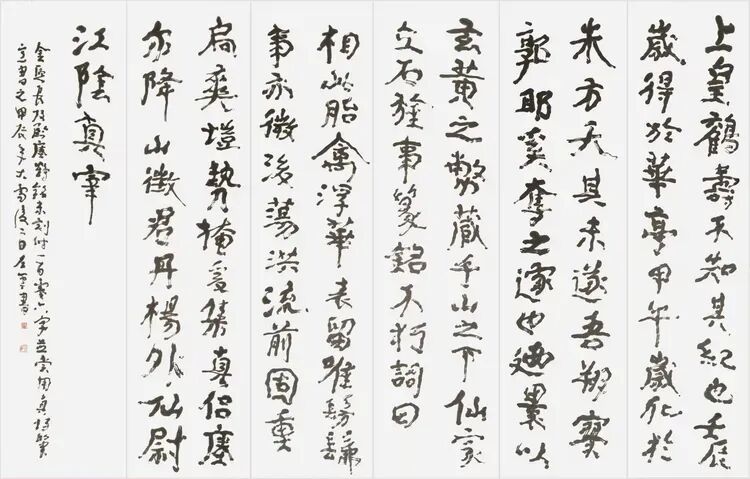 上皇鶴壽不知其紀也壬辰
歲得於華亭甲午歲化於
朱方天其未遂吾翔寥
郭耶奚奪之遽也迺裹以
玄黄之幣藏乎山之下仙家
立石旌事篆銘不朽詞曰
相此胎禽浮華表留唯髣髴
事亦微後蕩洪流前固重
扃爽塏勢掩集真侶瘞
尒降山徵君丹楊外仙尉
江陰真宰
瘞鶴銘未刻时一百零六字
書之甲辰冬大雪後二日左書